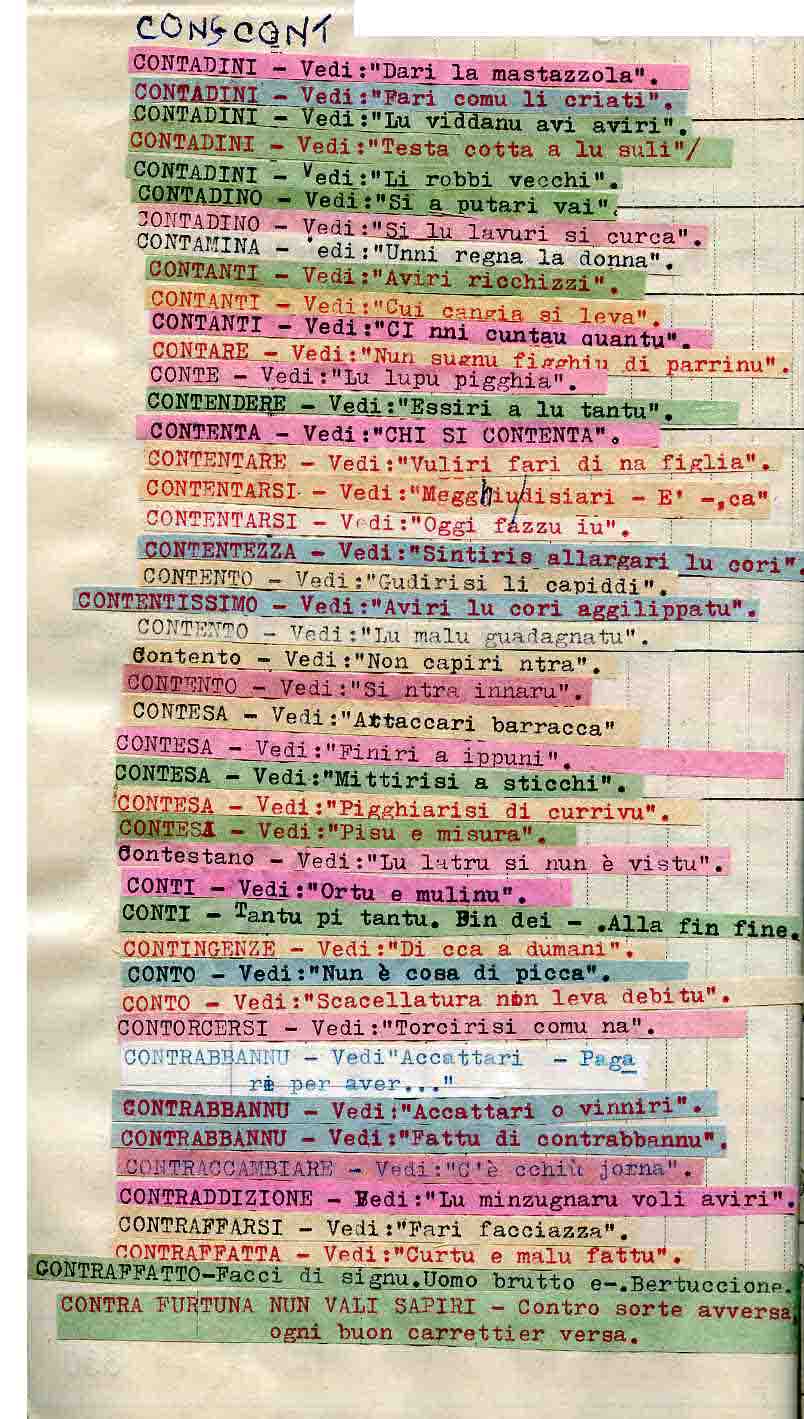 CONS CONT
CONTADINI - Vedi:"Dari la mastazzola".
CONTADINI - Vedi:"Fari comu li criati".
CONTADINI - Vedi:"Lu viddanu avi aviri".
CONTADINI - Vedi:"Testa cotta a lu suli"/
CONTADINI - Vedi:"Li robbi vecchi".
CONTADINO - Vedi:"Si a putari vai".
CONTADINO - Vedi:"Si lu lavuri si curca".
CONTAMINA - 'edi:"Unni regna la donna".
CONTANTI - Vedi:"Aviri ricchizzi".
CONTANTI - Vedi:"Cui cangia si leva".
CONTANTI - Vedi:"CI nni cuntau quantu".
CONTARE - Vedi:"Nun sugnu figghiu di parrinu".
CONTE - Vedi:"Lu lupu pigghia".
CONTENDERE - Vedi:"Essiri a lu tantu".
CONTENTA - Vedi:"CHI SI CONTENTA".
CONTENTARE - Vedi:"Vuliri fari di na figlia".
CONTENTARSI - Vedi:"Megghiu/disiari - E' -,ca"
CONTENTARSI - Vedi:"Oggi fazzu iu".
CONTENTEZZA - Vedi:"Sintiris allargari lu cori".
CONTENTO - Vedi:"Gudirisi li capiddi".
CONTENTISSIMO - Vedi:"Aviri lu cori aggilippatu".
CONTENTO - Vedi:"Lu malu guadagnatu".
Contento - Vedi:"Non capiri ntra".
CONTENTO - Vedi:"Si ntra innaru".
CONTESA - Vedi:"Attaccari barracca"
CONTESA - Vedi:"Finiri a ippuni".
CONTESA - Vedi:"Mittirisi a sticchi".
CONTESA - Vedi:"Pigghiarisi di currivu".
CONTESA - Vedi:"Pisu e misura".
Contestano - Vedi:"Lu latru si nun è vistu".
CONTI - Vedi:"Ortu e mulinu".
CONTI - Tantu pi tantu. Fin dei - .Alla fin fine.
CONTINGENZE - Vedi:"Di cca a dumani".
CONTO - Vedi:"Nun è cosa di picca".
CONTO - Vedi:"Scacellatura non leva debitu".
CONTORCERSI - Vedi:"Torcirisi comu na".
CONTRABBANNU - Vedi"Accattari - Paga
ri per aver..."
CONTRABBANNU - Vedi:"Accattari o vinniri".
CONTRABBANNU - Vedi:"Fattu di contrabbannu".
CONTRACCAMBIARE - Vedi:"C'è cchiù jorna".
CONTRADDIZIONE - Vedi:"Lu minzugnaru voli aviri".
CONTRAFFARSI - Vedi:"Fari facciazza".
CONTRAFFATTA - Vedi:"Curtu e malu fattu".
CONTRAFFATTO-Facci di signu.Uomo brutto e-.Bertuccione.
CONTRA FURTUNA NUN VALI SAPIRI - Contro sorte avversa,
ogni buon carrettier versa.